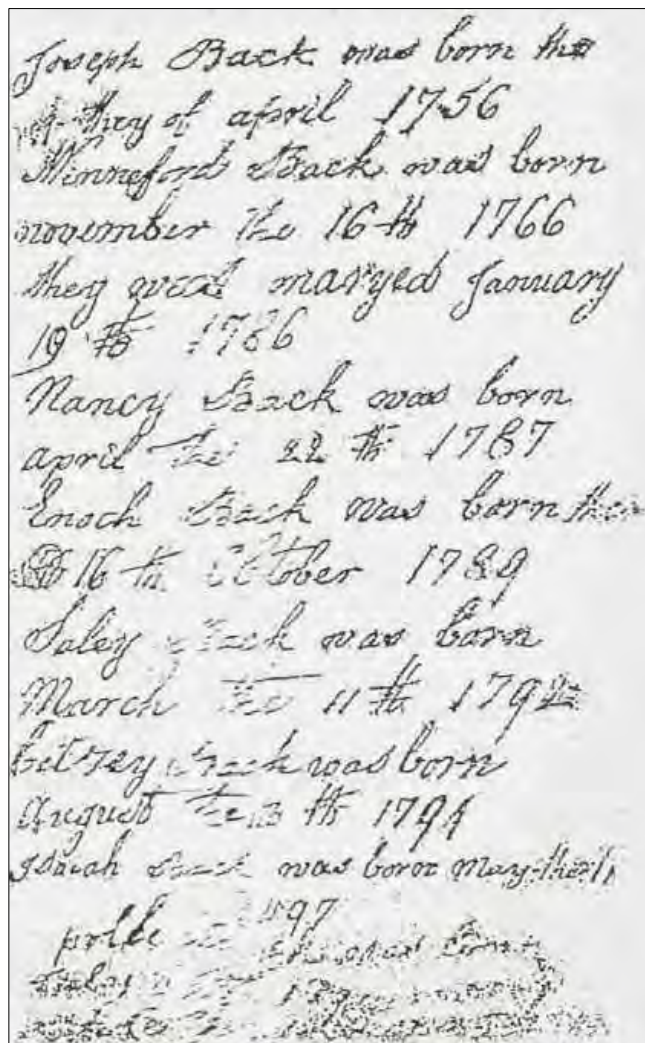 Joseph Back was born the
they of april 1756
Minneford Back was born
november the 16 th 1766
they were maryed January
19 th 1786
Nancy Back was born
april the 22 th 1787
Enoch Back was born the
16 th October 1789
Saley Back was born
March the 11 th 179
betsey Back was born
August the th 1794
Isaiah Back was born may the 11
polle 97
was born